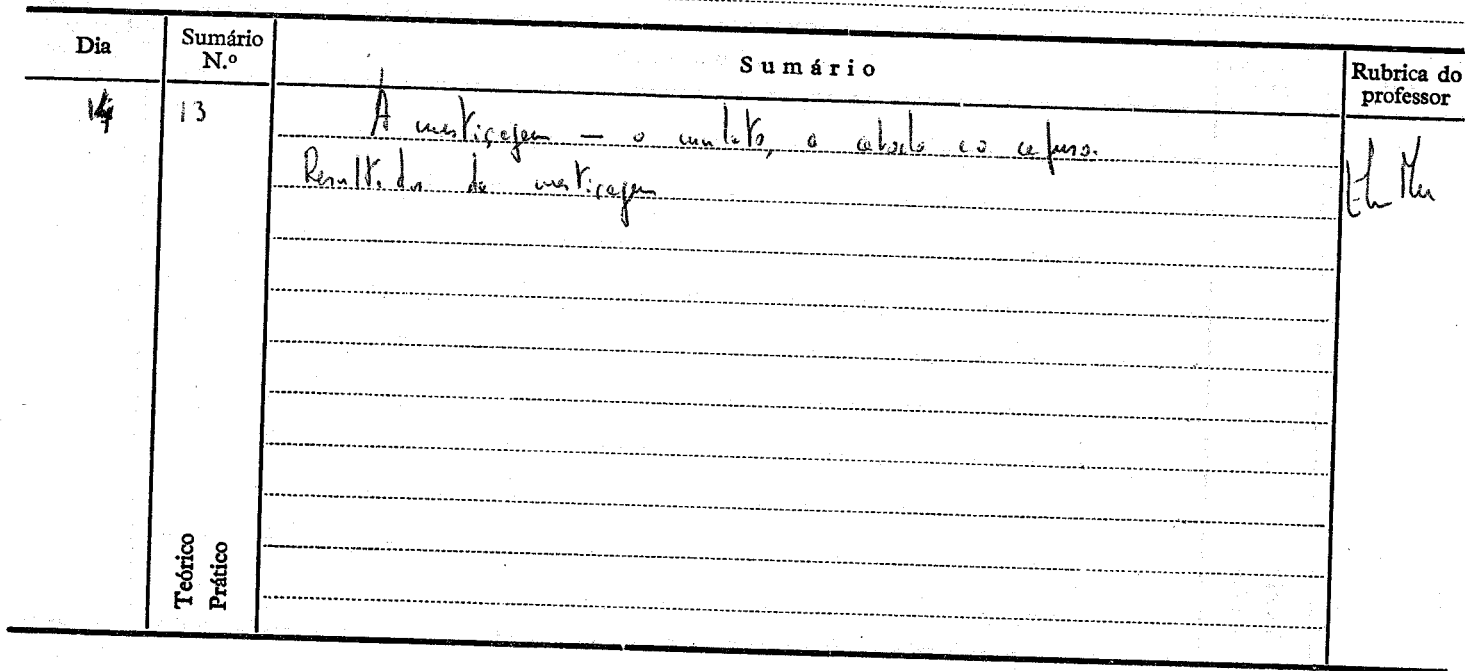 Dia
Sumário N.º
Sumário
Rubrica do professor
14
13
A mestiçagem — o mulato, o caboclo e o cafuso.
Resultados da mestiçagem
Teórico
Prático